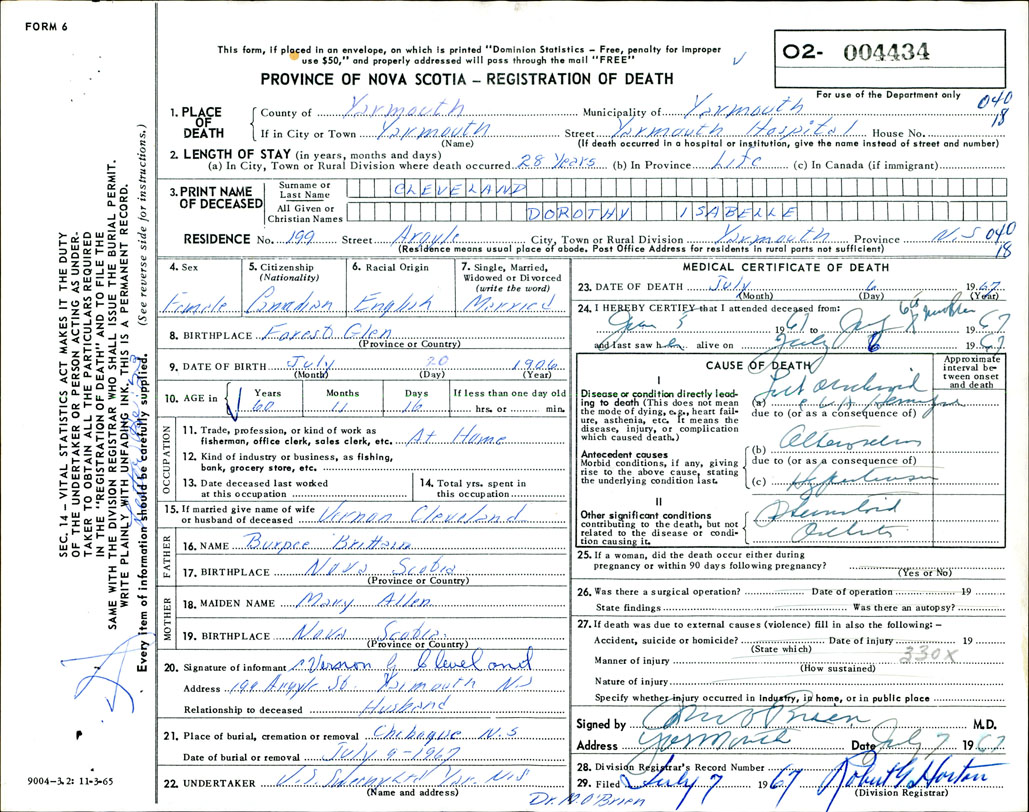 FORM 6
This form, if placed in an envelope, on which is printed "Dominion Statistics – Free, penalty for improper
use $50," and properly addressed will pass through the mail "FREE"
O2- 004434
PROVINCE OF NOVA SCOTIA – REGISTRATION OF DEATH
For use of the Department only
040
18
1. PLACE OF DEATH County of Yarmouth Municipality of Yarmouth
If in City or Town Yarmouth Street Yarmouth Hospital House No.
(Name) (If death occurred in a hospital or institution, give the name instead of street and number)
2. LENGTH OF STAY (in years, months and days)
(a) In City, Town or Rural Division where death occurred 28 Years (b) In Province Life (c) In Canada (if immigrant)
3. PRINT NAME OF DECEASED Surname or Last Name CLEVELAND
All Given or Christian Names DOROTHY ISABELLE
RESIDENCE No. 199 Street Argyle City, Town or Rural Division Yarmouth Province N.S 040
18
(Residence means usual place of abode. Post Office Address for residents in rural parts not sufficient)
SEC. 14 – VITAL STATISTICS ACT MAKES IT THE DUTY
OF THE UNDERTAKER OR PERSON ACTING AS UNDER-
TAKER TO OBTAIN ALL THE PARTICULARS REQUIRED
IN THE "REGISTRATION OF DEATH" AND TO FILE THE
SAME WITH THE DIVISION REGISTRAR WHO SHALL ISSUE THE BURIAL PERMIT.
WRITE PLAINLY WITH UNFADING INK, THIS IS A PERMANENT RECORD.
Every item of information should be carefully supplied. (See reverse side for instructions.)
4. Sex
Female
5. Citizenship
(Nationality)
Canadian
6. Racial Origin
English
7. Single, Married,
Widowed or Divorced
(write the word)
Married
8. BIRTHPLACE Forest Glen
(Province or Country)
9. DATE OF BIRTH July 20 1906
(Month) (Day) (Year)
10. AGE in Years Months Days If less than one day old
60 11 16 hrs. or min.
OCCUPATION
11. Trade, profession, or kind of work as
fisherman, office clerk, sales clerk, etc. At Home
12. Kind of industry or business, as fishing,
bank, grocery store, etc.
13. Date deceased last worked
at this occupation
14. Total yrs. spent in
this occupation
15. If married give name of wife
or husband of deceased Vernon Cleveland
FATHER
16. NAME Burpee Brittain
17. BIRTHPLACE Nova Scotia
(Province or Country)
MOTHER
18. MAIDEN NAME Mary Allen
19. BIRTHPLACE Nova Scotia
(Province or Country)
20. Signature of informant Vernon G Cleveland
Address 199 Argyle St. Yarmouth N.S
Relationship to deceased Husband
21. Place of burial, cremation or removal Chebogue N.S
Date of burial or removal July 9-1967
22. UNDERTAKER Yar. N.S
(Name and address)
9004–3.2: 11-3-65
MEDICAL CERTIFICATE OF DEATH
23. DATE OF DEATH July 6 1967
(Month) (Day) (Year)
24. I HEREBY CERTIFY that I attended deceased from:
Jan 5 1961 to July 6 1967
and last saw her alive on July 6 1967
CAUSE OF DEATH
Approximate
interval be-
tween onset
and death
I
Disease or condition directly lead-
ing to death (This does not mean
the mode of dying, e.g., heart fail-
ure, asthenia, etc. It means the
disease, injury, or complication
which caused death.)
(a)
due to (or as a consequence of)
Antecedent causes
Morbid conditions, if any, giving
rise to the above cause, stating
the underlying condition last.
(b)
due to (or as a consequence of)
(c) Hypertension
II
Other significant conditions
contributing to the death, but not
related to the disease or condi-
tion causing it.
25. If a woman, did the death occur either during
pregnancy or within 90 days following pregnancy?
(Yes or No)
26. Was there a surgical operation? Date of operation 19
State findings Was there an autopsy?
27. If death was due to external causes (violence) fill in also the following: –
Accident, suicide or homicide? Date of injury 19
(State which)
Manner of injury 330X
(How sustained)
Nature of injury
Specify whether injury occurred in industry, in home, or in public place
Signed by O'Brien M.D.
Address Yarmouth Date July 7 1967
28. Division Registrar's Record Number
29. Filed July 7 1967 Robert G Horton
(Division Registrar)
Dr. M. O'Brien